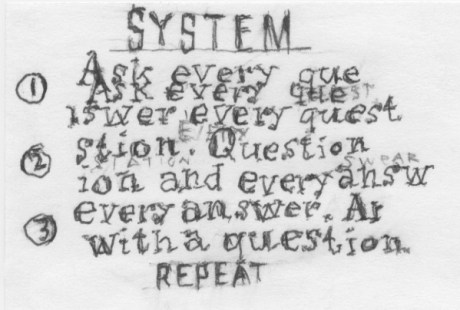 SYSTEM
① Ask every que
Ask every quest
nswer every quest
② stion. Question
ion and every answ
③ every answer. An
with a question.
REPEAT